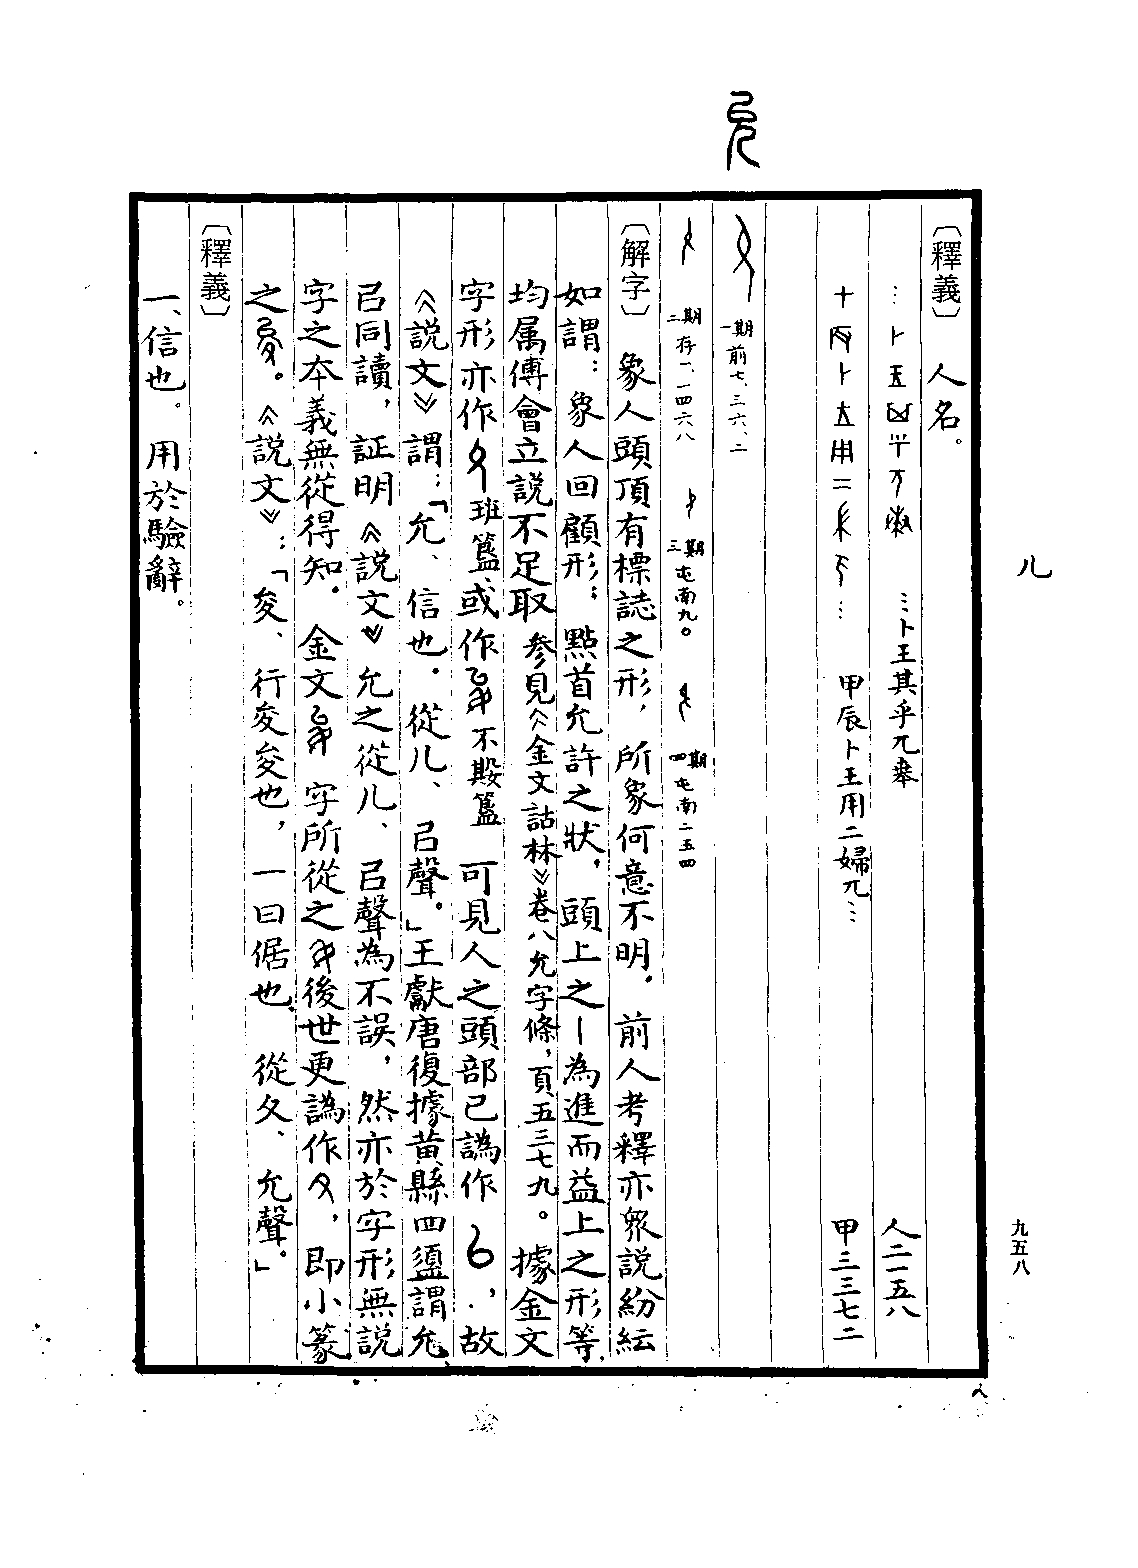 儿
九五八
〔釋義〕 人名。
…卜王其乎兀𠦪 人二一五八
甲辰卜王用二婦兀… 甲三三七二
允
一期前七、三六、二
二期存一、一四六八 三期屯南九〇 四期屯南二五四
〔解字〕 象人頭頂有標誌之形，所象何意不明。前人考釋亦眾說紛紜
如謂：象人回顧形；點首允許之狀，頭上之丨為進而益上之形等
均屬傅會立說不足取參見《金文詁林》卷八允字條，頁五三七九。據金文
字形亦作 班簋、或作 不𡢁簋 可見人之頭部已譌作 ，故
《說文》謂：「允、信也。從儿、㠯聲。」王獻唐復據黄縣四盨謂允
㠯同讀，証明《說文》允之從儿、㠯聲為不誤，然亦於字形無說
字之本義無從得知。金文 字所從之 後世更譌作夊，即小篆
之 。《說文》：「夋、行夋夋也，一曰倨也、從夊、允聲。」
〔釋義〕
一、信也。用於驗辭。